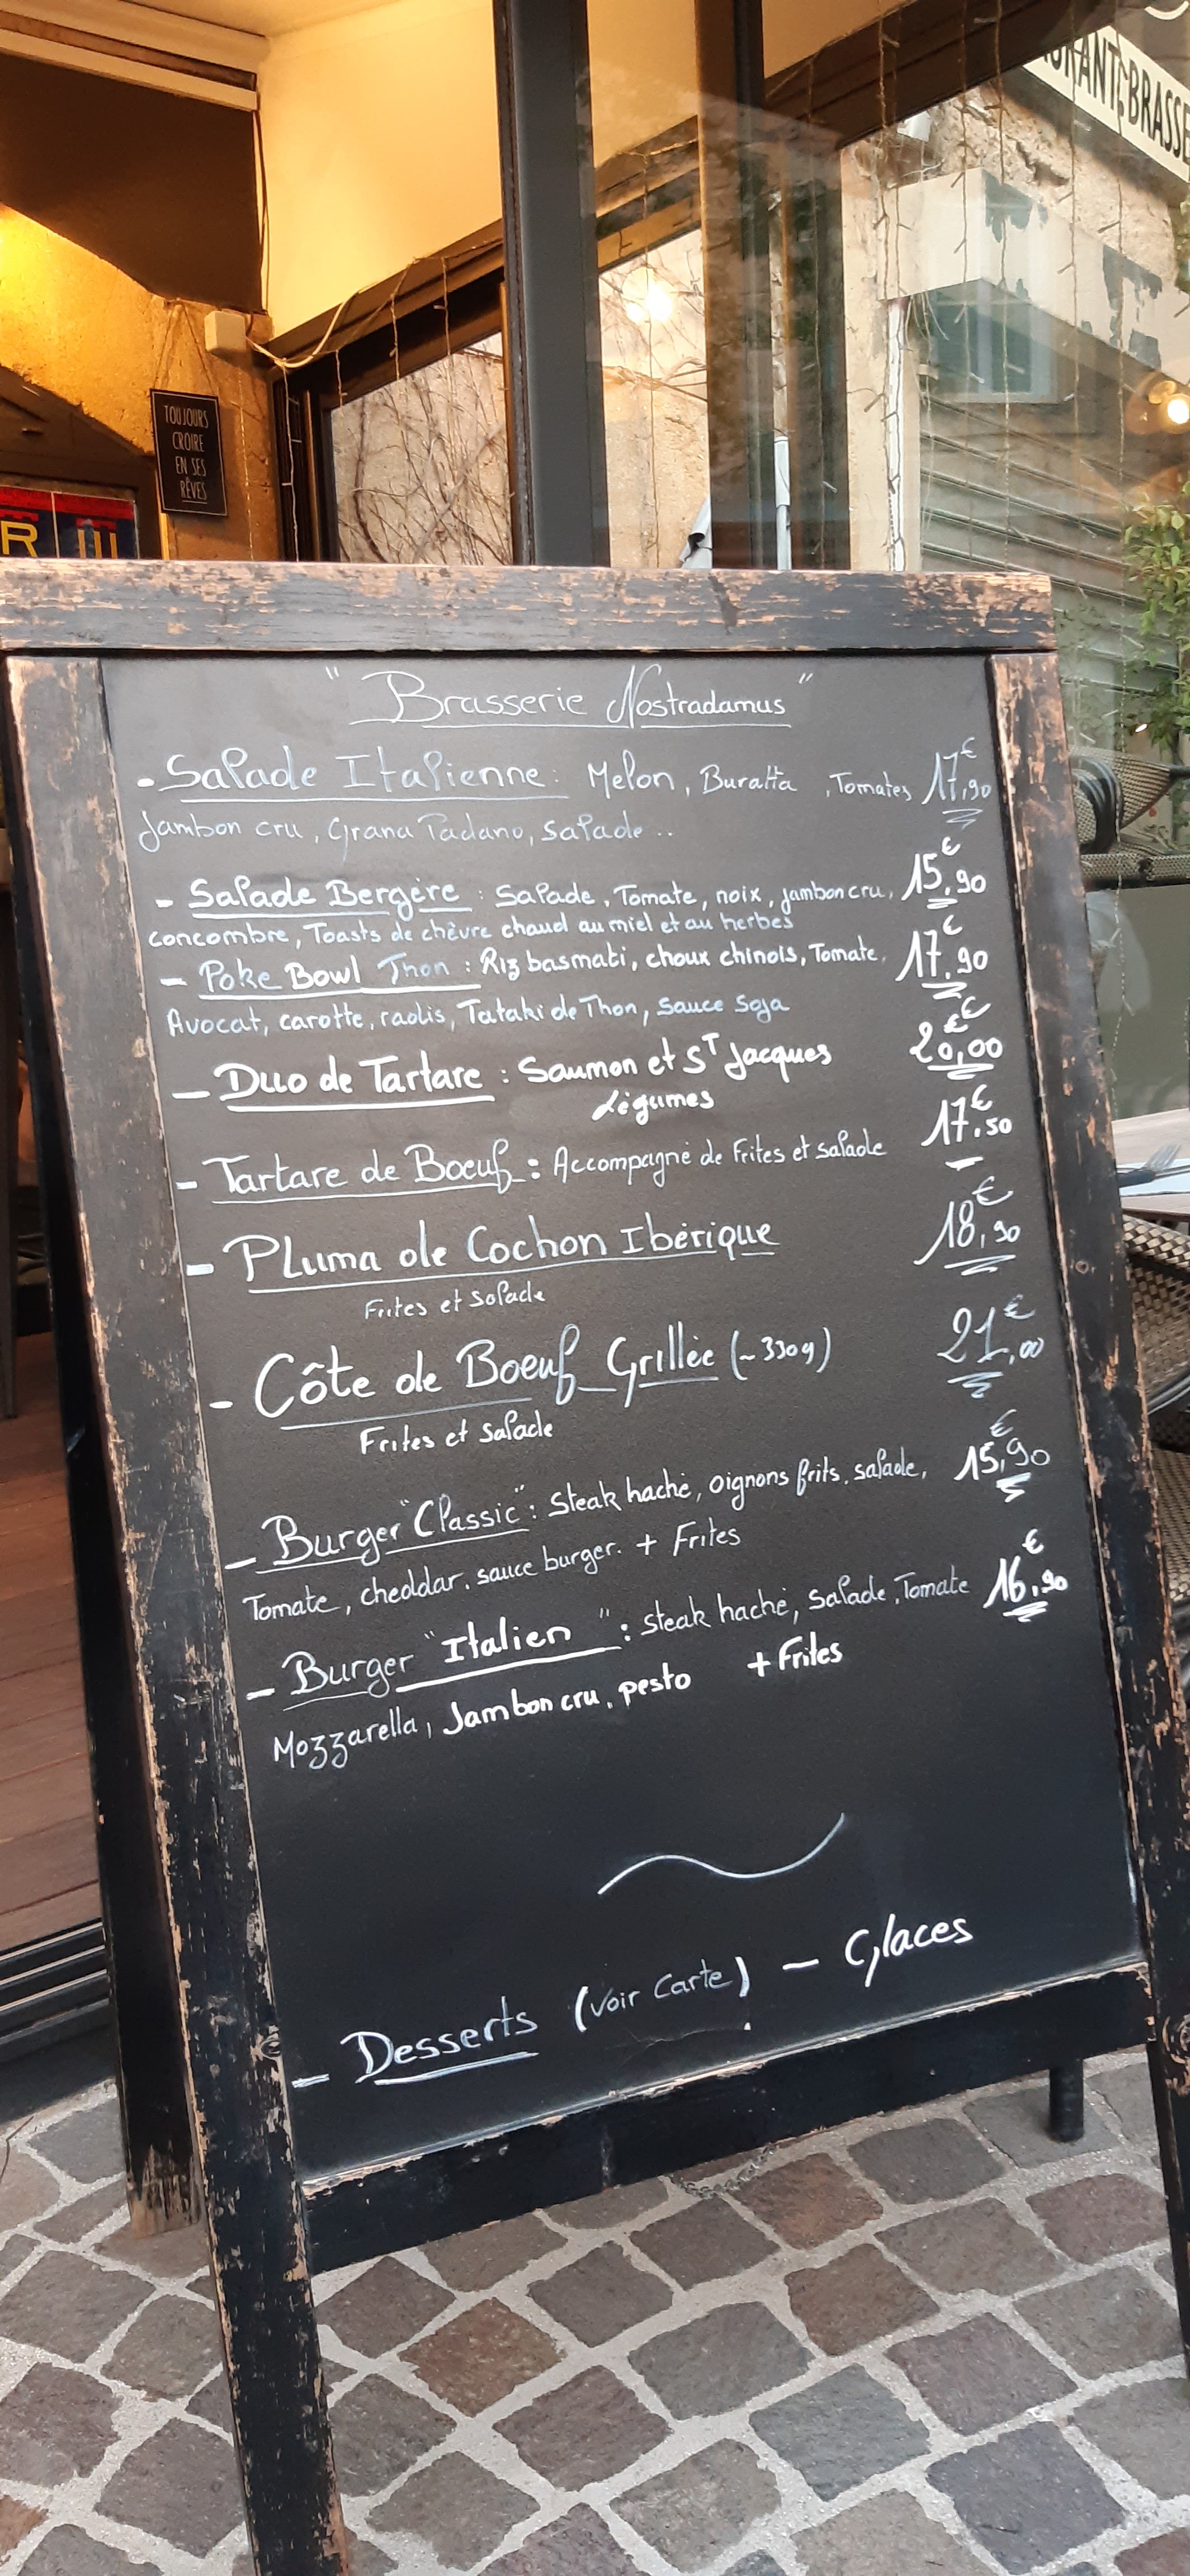 AURANT BRASSE
TOUJOURS
CROIRE
EN SES
RÊVES
R
"Brasserie Nostradamus"
- Salade Italienne : Melon, Buratta , Tomates 17,90€
Jambon cru, Grana Padano, salade ..
- Salade Bergère : Salade, Tomate, noix, jambon cru, 15,90€
concombre, Toasts de chèvre chaud au miel et au herbes
- Poke Bowl Thon : Riz basmati, choux chinois, Tomate, 17,90€
Avocat, carotte, radis, Tataki de Thon, sauce soja
- Duo de Tartare : Saumon et St Jacques 20,00€
Légumes
- Tartare de Boeuf : Accompagné de Frites et salade 17,50€
- Pluma de Cochon Ibérique 18,90€
Frites et salade
- Côte de Boeuf Grillée (~330g) 21,00€
Frites et salade
- Burger "Classic" : Steak haché, oignons frits, salade, 15,90€
Tomate, cheddar, sauce burger. + Frites
- Burger "Italien" : steak haché, salade, Tomate 16,90€
Mozzarella, Jambon cru, pesto + Frites
- Desserts (Voir Carte) - Glaces